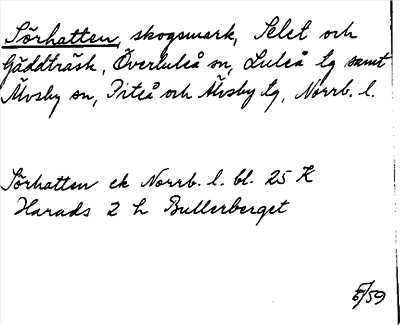 Sörhatten, skogsmark, Selet och
Gäddträsk, Överluleå sn, Luleå tg samt
Älvsby sn, Piteå och Älvsby tg, Norrb. l.
Sörhatten ek Norrb. l. bl. 25 K
Harads 2 h Bullerberget
/59